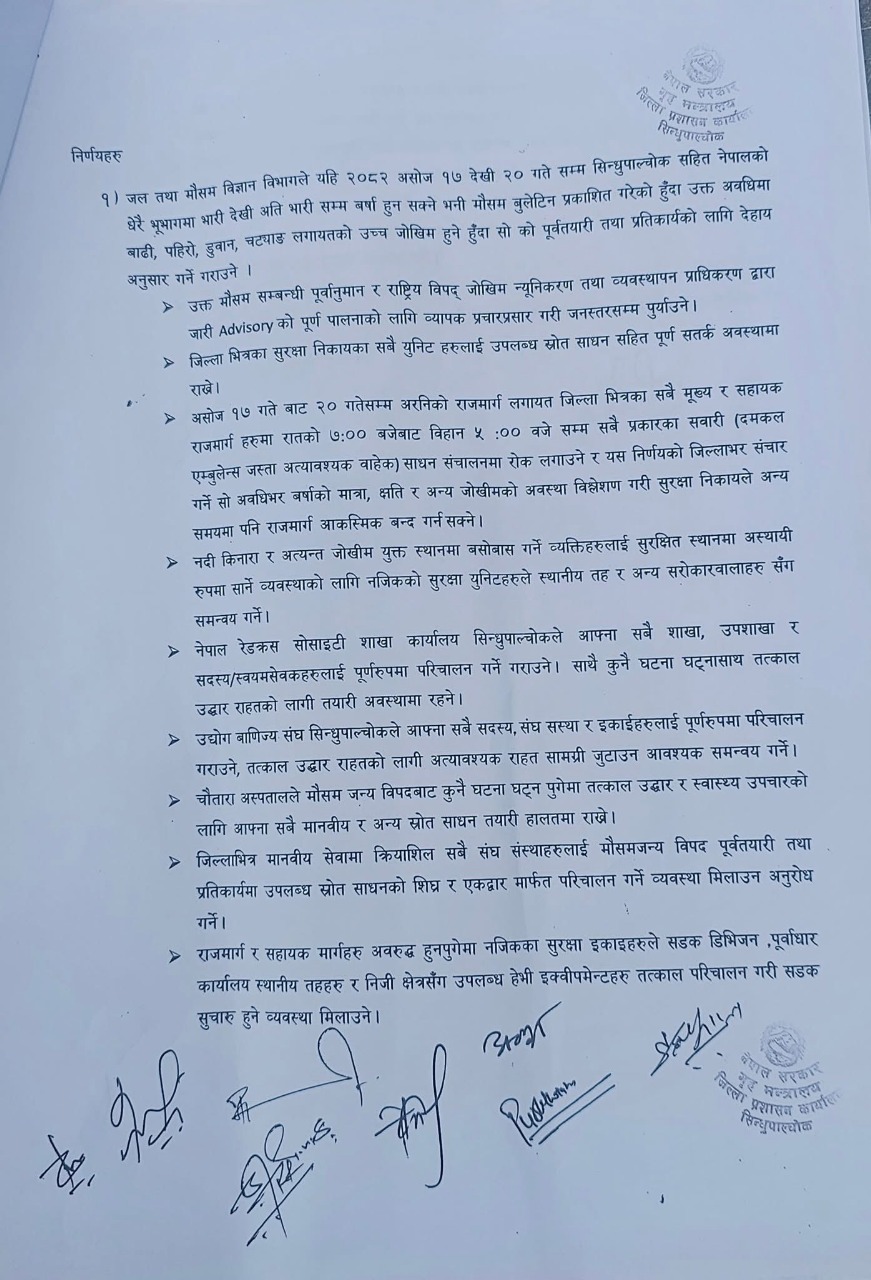 नेपाल सरकार
गृह मन्त्रालय
जिल्ला प्रशासन कार्यालय
सिन्धुपाल्चोक
निर्णयहरु
१) जल तथा मौसम विज्ञान विभागले यहि २०८२ असोज १७ देखी २० गते सम्म सिन्धुपाल्चोक सहित नेपालको
धेरै भूभागमा भारी देखी अति भारी सम्म बर्षा हुन सक्ने भनी मौसम बुलेटिन प्रकाशित गरेको हुँदा उक्त अवधिमा
बाढी, पहिरो, डुवान, चट्याङ लगायतको उच्च जोखिम हुने हुँदा सो को पूर्वतयारी तथा प्रतिकार्यको लागि देहाय
अनुसार गर्ने गराउने ।
➢ उक्त मौसम सम्बन्धी पूर्वानुमान र राष्ट्रिय विपद् जोखिम न्यूनिकरण तथा व्यवस्थापन प्राधिकरण द्वारा
जारी Advisory को पूर्ण पालनाको लागि व्यापक प्रचारप्रसार गरी जनस्तरसम्म पुर्याउने।
➢ जिल्ला भित्रका सुरक्षा निकायका सबै युनिट हरुलाई उपलब्ध स्रोत साधन सहित पूर्ण सतर्क अवस्थामा
राख्ने।
➢ असोज १७ गते बाट २० गतेसम्म अरनिको राजमार्ग लगायत जिल्ला भित्रका सबै मूख्य र सहायक
राजमार्ग हरुमा रातको ७:०० बजेबाट विहान ५ :०० वजे सम्म सबै प्रकारका सवारी (दमकल
एम्बुलेन्स जस्ता अत्यावश्यक वाहेक) साधन संचालनमा रोक लगाउने र यस निर्णयको जिल्लाभर संचार
गर्ने सो अवधिभर बर्षाको मात्रा, क्षति र अन्य जोखीमको अवस्था विश्लेशण गरी सुरक्षा निकायले अन्य
समयमा पनि राजमार्ग आकस्मिक बन्द गर्न सक्ने।
➢ नदी किनारा र अत्यन्त जोखीम युक्त स्थानमा बसोबास गर्ने व्यक्तिहरुलाई सुरक्षित स्थानमा अस्थायी
रुपमा सार्ने व्यवस्थाको लागि नजिकको सुरक्षा युनिटहरुले स्थानीय तह र अन्य सरोकारवालाहरु सँग
समन्वय गर्ने।
➢ नेपाल रेडक्रस सोसाइटी शाखा कार्यालय सिन्धुपाल्चोकले आफ्ना सबै शाखा, उपशाखा र
सदस्य/स्वयमसेवकहरुलाई पूर्णरुपमा परिचालन गर्ने गराउने। साथै कुनै घटना घट्नासाथ तत्काल
उद्धार राहतको लागी तयारी अवस्थामा रहने।
➢ उद्योग बाणिज्य संघ सिन्धुपाल्चोकले आफ्ना सबै सदस्य, संघ सस्था र इकाईहरुलाई पूर्णरुपमा परिचालन
गराउने, तत्काल उद्धार राहतको लागी अत्यावश्यक राहत सामग्री जुटाउन आवश्यक समन्वय गर्ने।
➢ चौतारा अस्पतालले मौसम जन्य विपदबाट कुनै घटना घट्न पुगेमा तत्काल उद्धार र स्वास्थ्य उपचारको
लागि आफ्ना सबै मानवीय र अन्य स्रोत साधन तयारी हालतमा राख्ने।
➢ जिल्लाभित्र मानवीय सेवामा क्रियाशिल सबै संघ संस्थाहरुलाई मौसमजन्य विपद पूर्वतयारी तथा
प्रतिकार्यमा उपलब्ध स्रोत साधनको शिघ्र र एकद्वार मार्फत परिचालन गर्ने व्यवस्था मिलाउन अनुरोध
गर्ने।
➢ राजमार्ग र सहायक मार्गहरु अवरुद्ध हुनपुगेमा नजिकका सुरक्षा इकाइहरुले सडक डिभिजन ,पूर्वाधार
कार्यालय स्थानीय तहहरु र निजी क्षेत्रसँग उपलब्ध हेभी इक्वीपमेन्टहरु तत्काल परिचालन गरी सडक
सुचारु हुने व्यवस्था मिलाउने।
नेपाल सरकार
गृह मन्त्रालय
जिल्ला प्रशासन कार्यालय
सिन्धुपाल्चोक